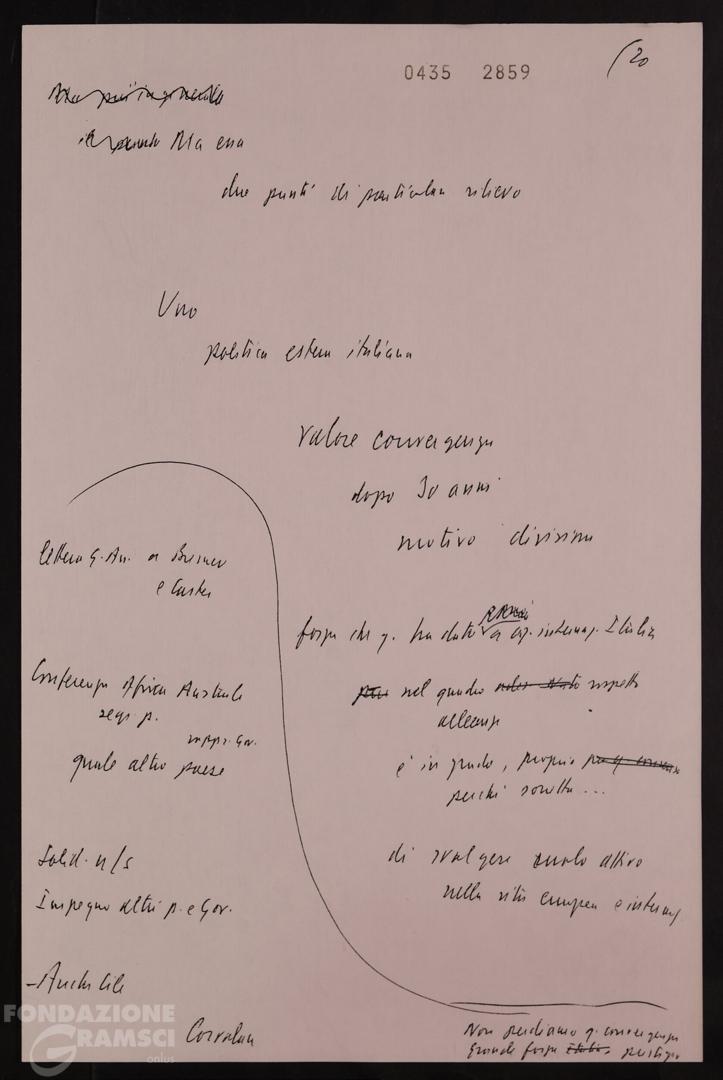 0435 2859
(20
Ma più in generale
Ma ena
due punti di particolar rilievo
Uno
politica estera italiana
Valore convergenza
dopo 30 anni
motivo divisione
forza che q. ha dato a cap. internaz. Italia
nel quadro rispetto
alleanze
è in grado, proprio
perché sorretta...
di svolgere ruolo attivo
nella vita europea e internaz.
Lettera G. An. a
e Carter
Conferenza Africa Australe
segr p.
rappr. Gov.
quale altro paese
Solid. n/s
Impegno altri p. e Gov.
- Anche Cile
Corvalan
Non perdiamo q. convergenza
Grande forza prestigio
FONDAZIONE
GRAMSCI
onlus